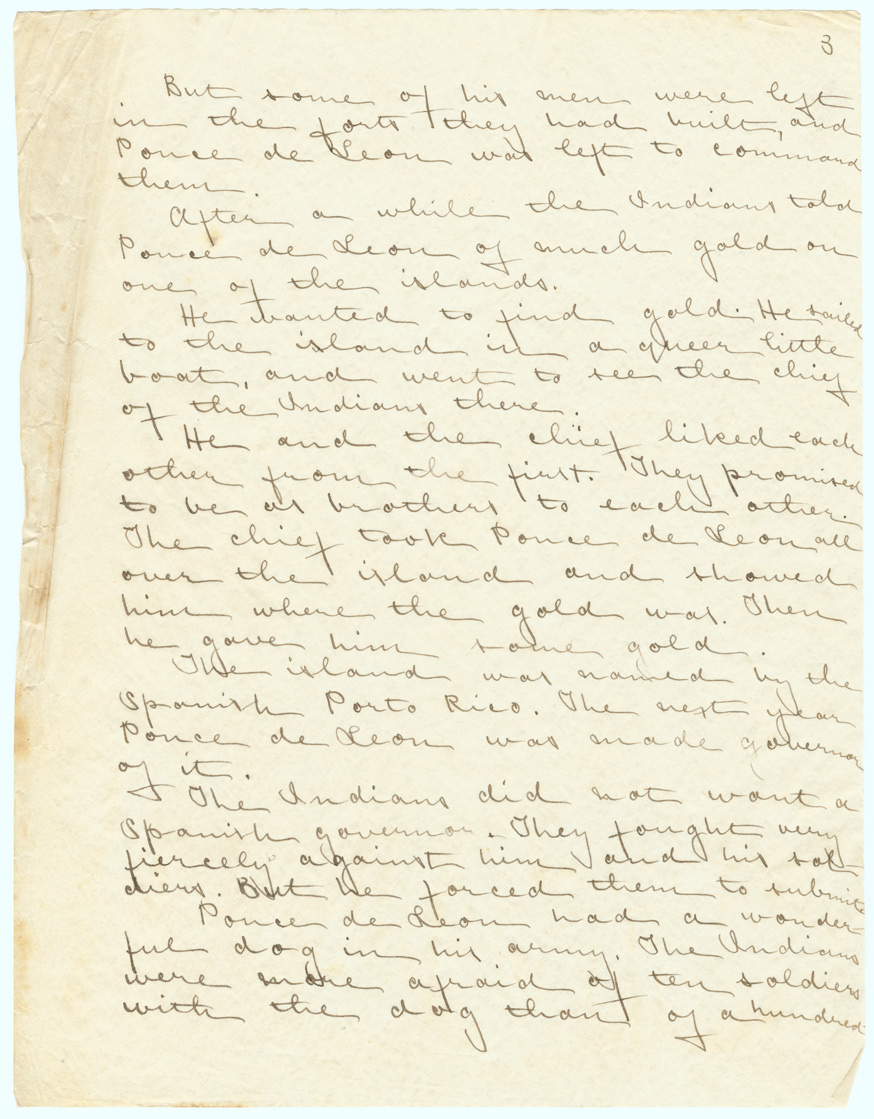 3
But some of his men were left
in the forts they had built, and
Ponce de Leon was left to command
them.
After a while the Indians told
Ponce de Leon of much gold on
one of the islands.
He wanted to find gold. He sailed
to the island in a queer little
boat, and went to see the chief
of the Indians there.
He and the chief liked each
other from the first. They promised
to be as brothers to each other.
The chief took Ponce de Leon all
over the island and showed
him where the gold was. Then
he gave him some gold.
The island was named by the
Spanish Porto Rico. The next year
Ponce de Leon was made governor
of it.
The Indians did not want a
Spanish governor. They fought very
fiercely against him and his sol-
diers. But he forced them to submit.
Ponce de Leon had a wonder-
ful dog in his army. The Indians
were more afraid of ten soldiers
with the dog than of a hundred